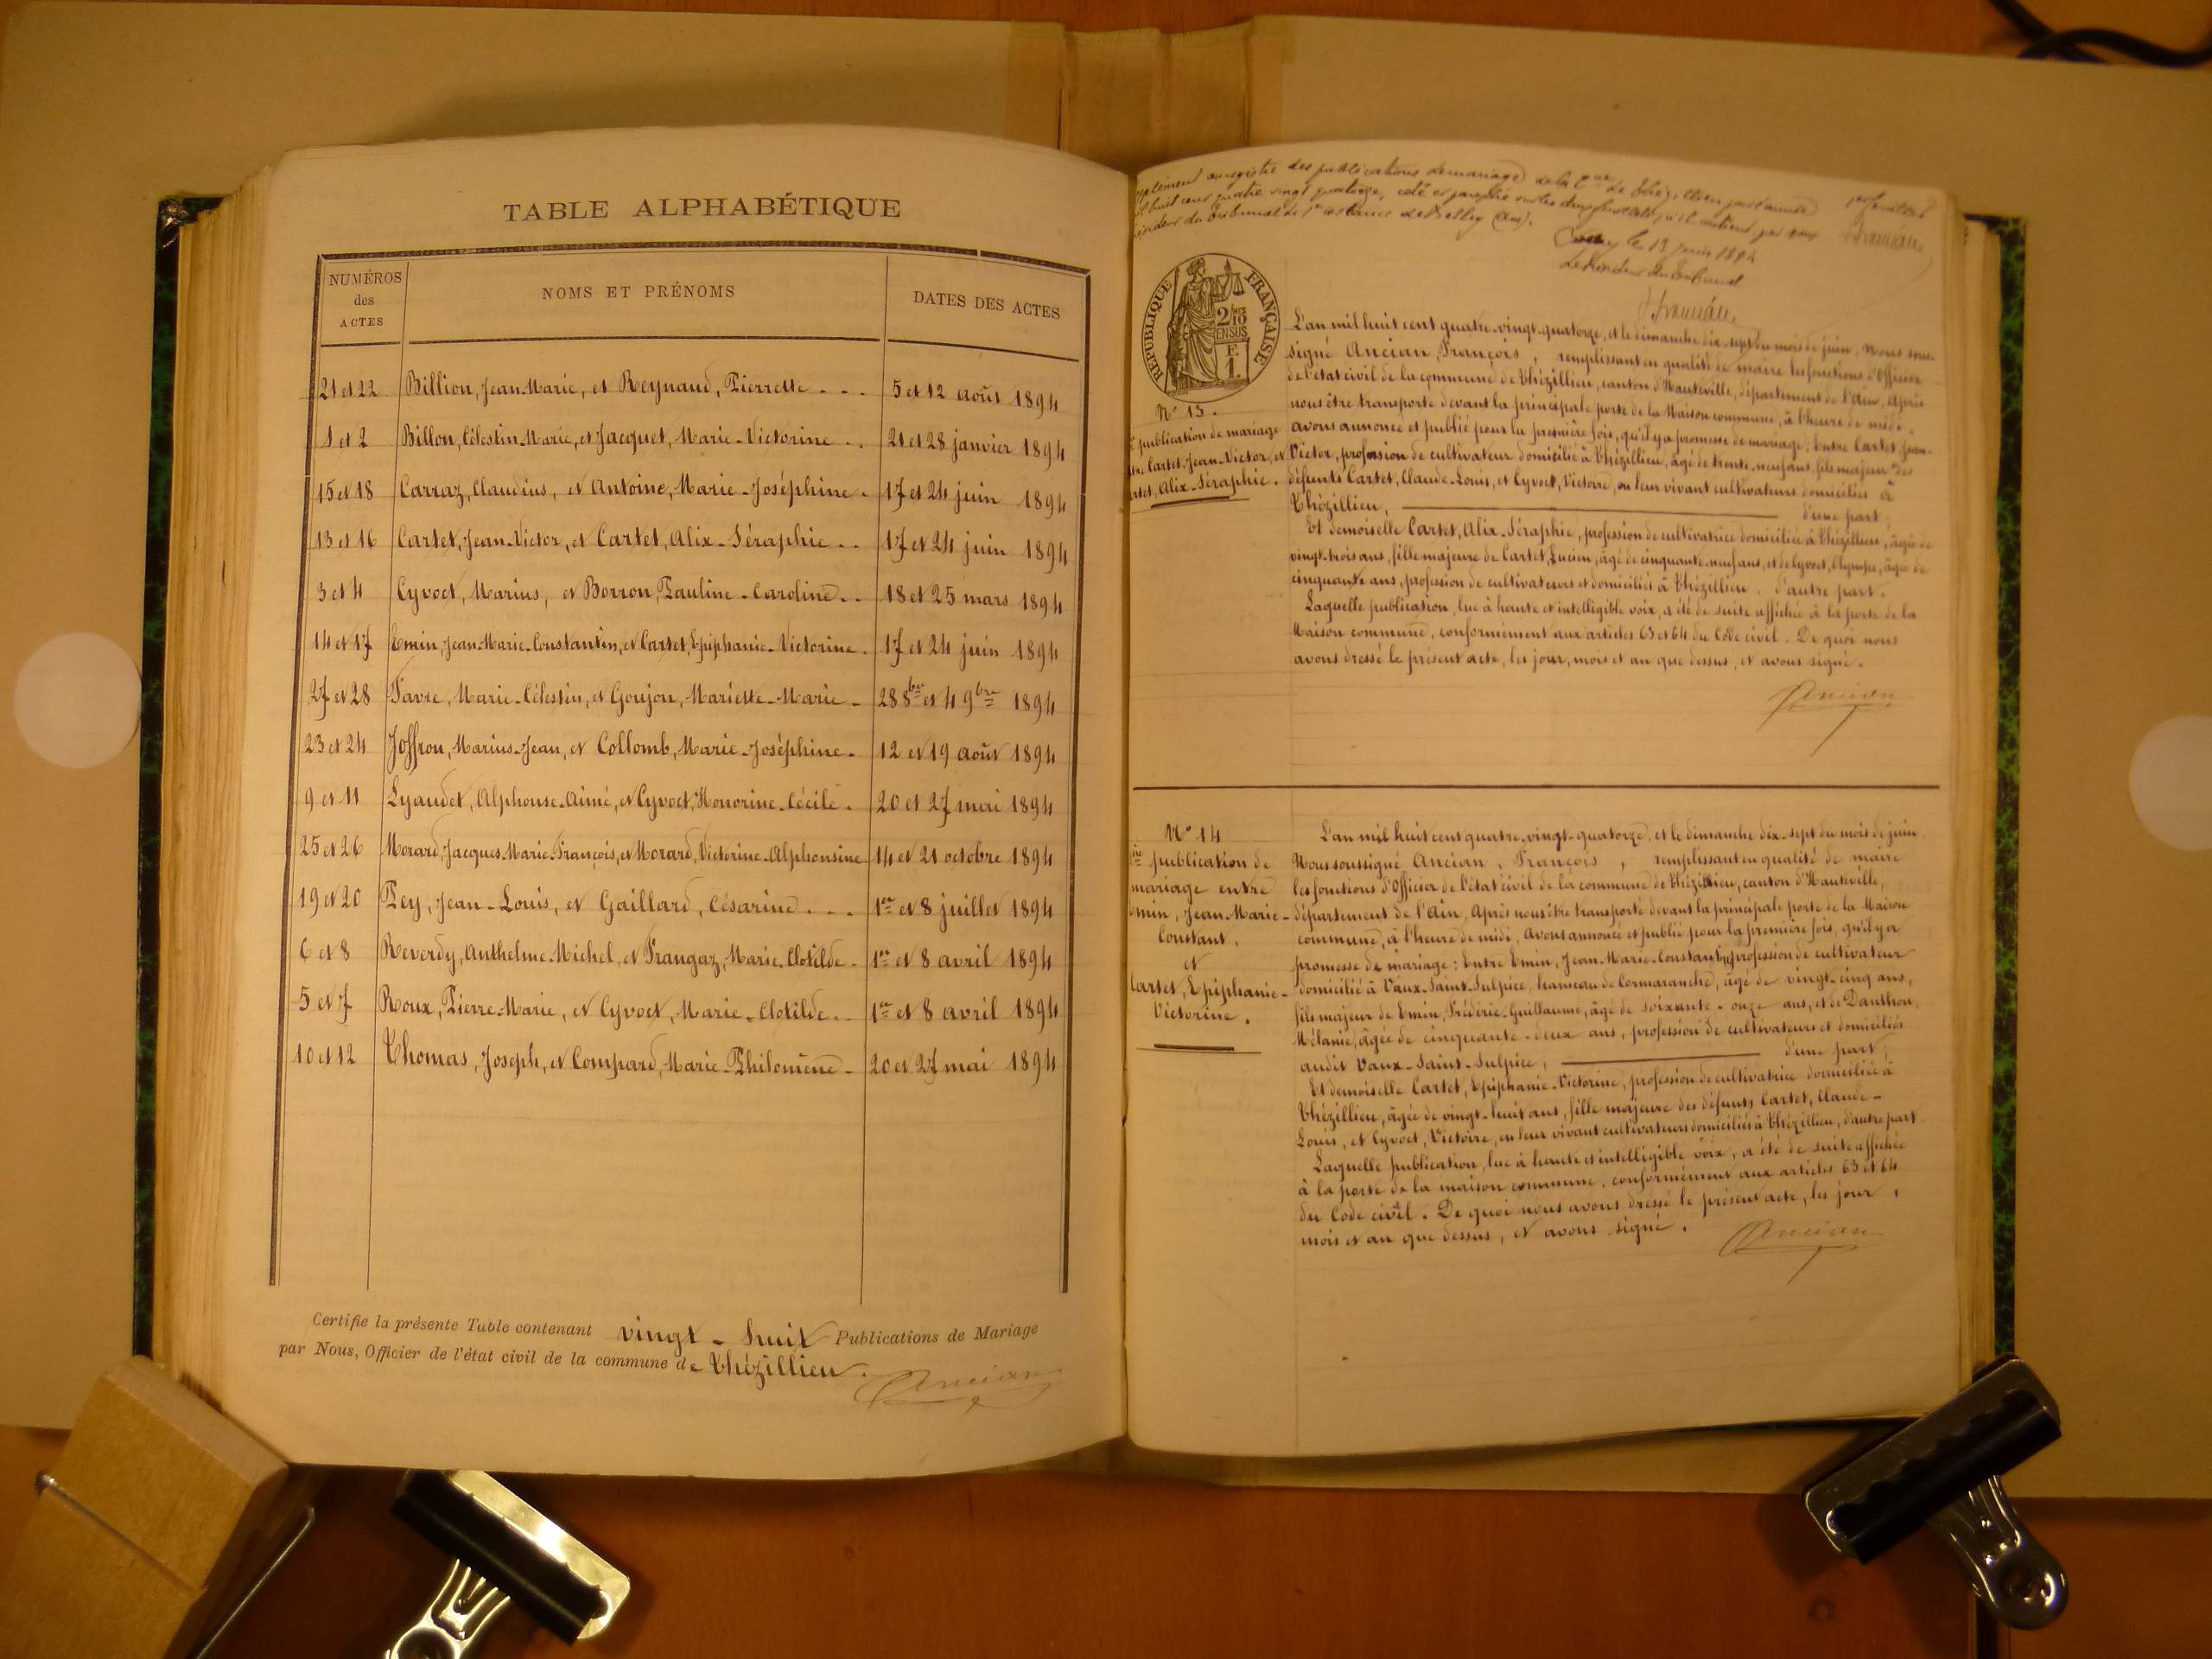 TABLE ALPHABÉTIQUE
NUMÉROS des ACTES
NOMS ET PRÉNOMS
DATES DES ACTES
21 et 22 Billion, Jean-Marie, et Reynaud, Pierrette 5 et 12 août 1894
1 et 2 Billon, Célestin-Marie, et Jacquet, Marie-Victorine 21 et 28 janvier 1894
15 et 18 Carraz, Claudius, et Antoine, Marie-Joséphine 17 et 24 juin 1894
13 et 16 Cartet, Jean-Victor, et Cartet, Alix-Séraphie 17 et 24 juin 1894
3 et 4 Cyvoct, Marius, et Borron, Pauline-Caroline 18 et 25 mars 1894
14 et 17 Emin, Jean-Marie-Constantin, et Cartet, Epiphanie-Victorine 17 et 24 juin 1894
27 et 28 Favre, Marie-Célestin, et Goujon, Mariette-Marie 28 8bre et 4 9bre 1894
23 et 24 Joffron, Marius-Jean, et Collomb, Marie-Joséphine 12 et 19 août 1894
9 et 11 Lyaudet, Alphonse-Aimé, et Cyvoct, Honorine-Cécile 20 et 27 mai 1894
25 et 26 Morard, Jacques-Marie-François, et Morard, Victorine-Alphonsine 14 et 21 octobre 1894
19 et 20 Pey, Jean-Louis, et Gaillard, Césarine 1er et 8 juillet 1894
6 et 8 Reverdy, Anthelme-Michel, et Frangaz, Marie-Clotilde 1er et 8 avril 1894
5 et 7 Roux, Pierre-Marie, et Cyvoct, Marie-Clotilde 1er et 8 avril 1894
10 et 12 Thomas, Joseph, et Compard, Marie-Philomène 20 et 27 mai 1894
Certifie la présente Table contenant vingt-huit Publications de Mariage
par Nous, Officier de l'état civil de la commune de Thézillieu.
Ancian
registre des publications de mariage de la Cne de Thézillieu pour l'année
huit cent quatre vingt quatorze, coté et paraphé sur les deux feuillets qu'il contient, par nous
du Tribunal de 1re instance de Belley (Ain).
1er feuillet
le 13 juin 1894
du Tribunal
RÉPUBLIQUE FRANÇAISE
2/10 EN SUS
F. 1.
N° 13.
publication de mariage
Cartet, Jean-Victor, et
Alix-Séraphie.
L'an mil huit cent quatre-vingt-quatorze, et le dimanche dix-sept du mois de juin. Nous sous-
signé Ancian, François, remplissant en qualité de maire les fonctions d'Officier
de l'état civil de la commune de Thézillieu, canton d'Hauteville, département de l'Ain, Après
nous être transporté devant la principale porte de la Maison commune, à l'heure de midi,
avons annoncé et publié pour la première fois, qu'il y a promesse de mariage : Entre Cartet, Jean-
Victor, profession de cultivateur domicilié à Thézillieu, âgé de trente-neuf ans, fils majeur des
défunts Cartet, Claude-Louis, et Cyvoct, Victoire, en leur vivant cultivateurs domiciliés à
Thézillieu, d'une part,
Et demoiselle Cartet, Alix-Séraphie, profession de cultivatrice domiciliée à Thézillieu, âgée de
vingt-trois ans, fille majeure de Cartet, Lucien, âgé de cinquante-neuf ans, et de Cyvoct, Olympe, âgée de
cinquante ans, profession de cultivateurs et domiciliés à Thézillieu, d'autre part.
Laquelle publication, lue à haute et intelligible voix, a été de suite affichée à la porte de la
Maison commune, conformément aux articles 63 et 64 du Code civil. De quoi nous
avons dressé le présent acte, les jour, mois et an que dessus, et avons signé.
Ancian
N° 14
publication de
mariage entre
Emin, Jean-Marie-
Constant,
et
Cartet, Epiphanie-
Victorine.
L'an mil huit cent quatre-vingt-quatorze, et le dimanche dix-sept du mois de juin.
Nous soussigné Ancian, François, remplissant en qualité de maire
les fonctions d'Officier de l'état civil de la commune de Thézillieu, canton d'Hauteville,
département de l'Ain, Après nous être transporté devant la principale porte de la Maison
commune, à l'heure de midi, Avons annoncé et publié pour la première fois, qu'il y a
promesse de mariage : Entre Emin, Jean-Marie-Constantin, profession de cultivateur
domicilié à Vaux-Saint-Sulpice, hameau de Cormaranche, âgé de vingt-cinq ans,
fils majeur de Emin, Frédéric-Guillaume, âgé de soixante-onze ans, et de Danthon,
Mélanie, âgée de cinquante-deux ans, profession de cultivateurs et domiciliés
audit Vaux-Saint-Sulpice, d'une part,
Et demoiselle Cartet, Epiphanie-Victorine, profession de cultivatrice domiciliée à
Thézillieu, âgée de vingt-huit ans, fille majeure des défunts Cartet, Claude-
Louis, et Cyvoct, Victoire, en leur vivant cultivateurs domiciliés à Thézillieu, d'autre part.
Laquelle publication, lue à haute et intelligible voix, a été de suite affichée
à la porte de la maison commune, conformément aux articles 63 et 64
du Code civil. De quoi nous avons dressé le présent acte, les jour,
mois et an que dessus, et avons signé.
Ancian